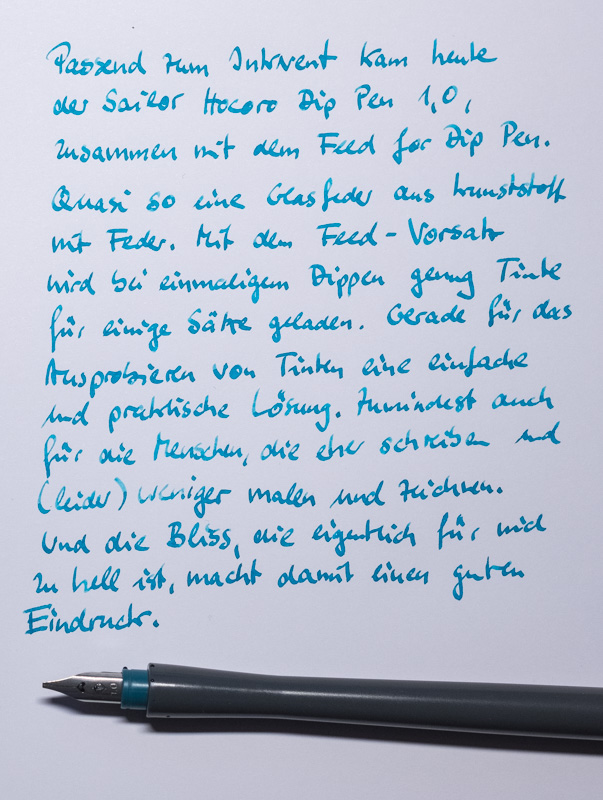 Passend zum Inkvent kam heute
der Sailor Hocoro Dip Pen 1,0,
zusammen mit dem Feed for Dip Pen.
Quasi so eine Glasfeder aus Kunststoff
mit Feder. Mit dem Feed-Vorsatz
wird bei einmaligem Dippen genug Tinte
für einige Sätze geladen. Gerade für das
Ausprobieren von Tinten eine einfache
und praktische Lösung. Zumindest auch
für die Menschen, die eher schreiben und
(leider) weniger malen und zeichnen.
Und die Bliss, die eigentlich für mich
zu hell ist, macht damit einen guten
Eindruck.